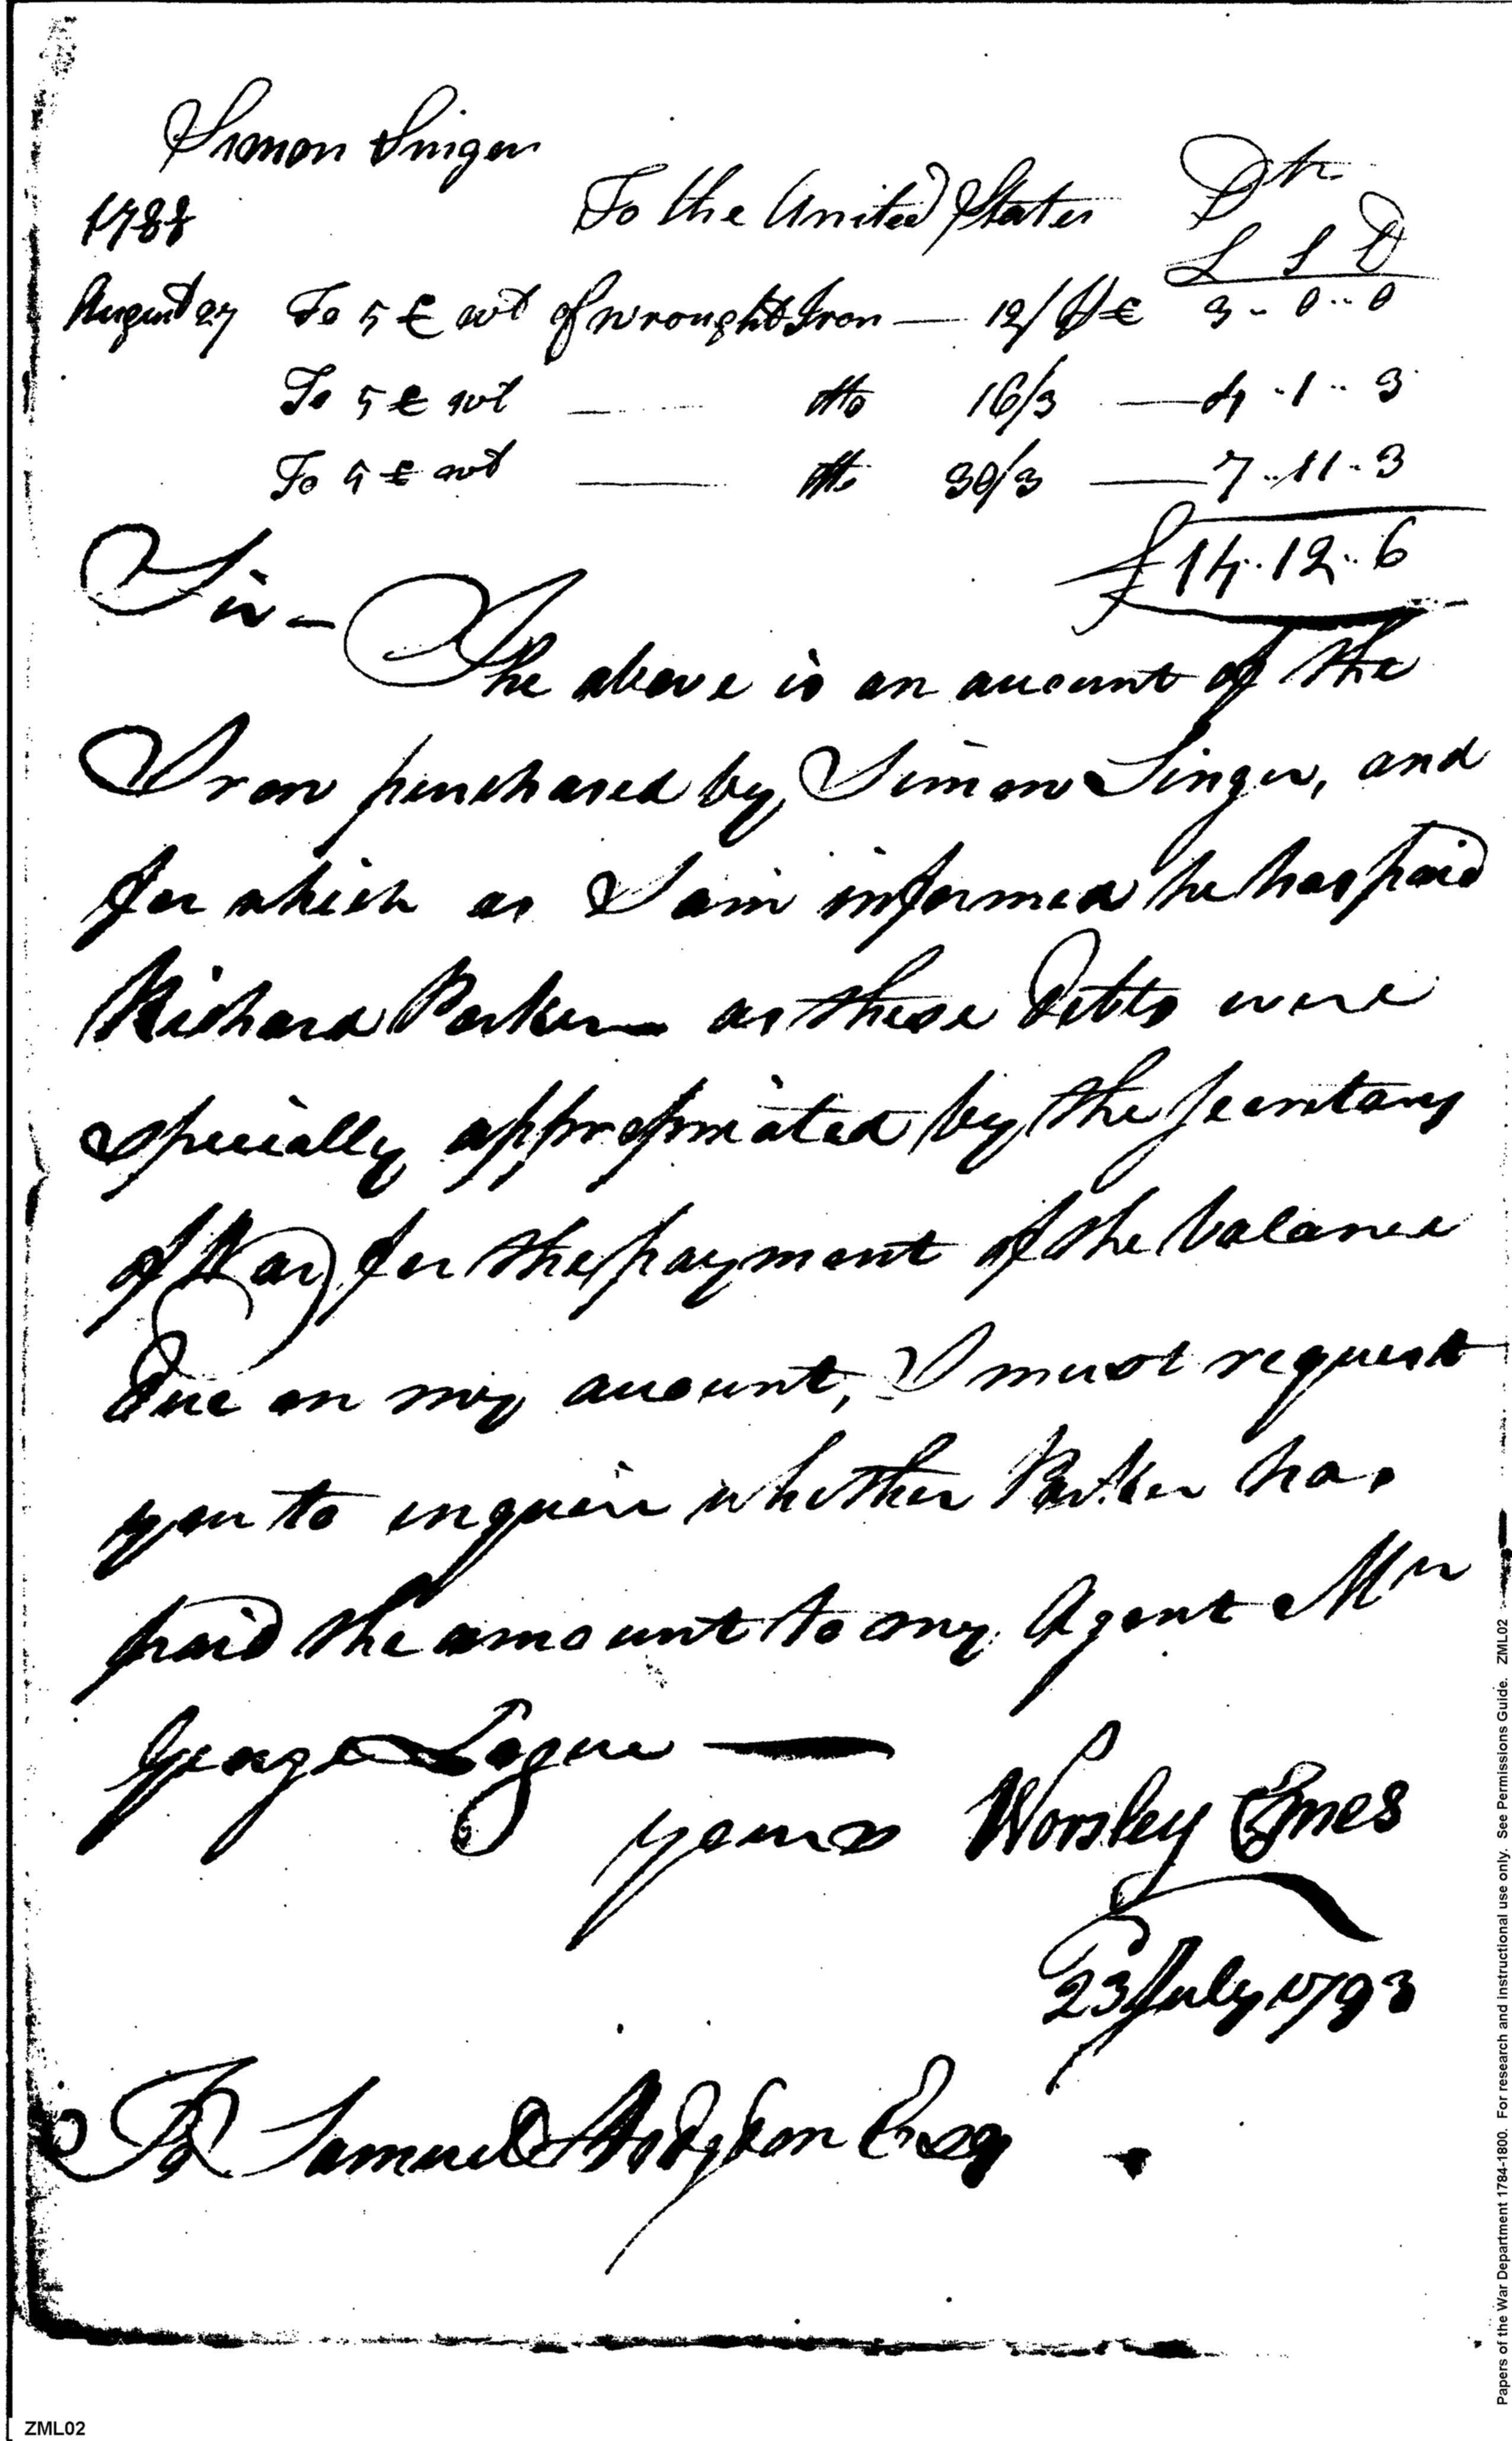 Simon Singer
To the United States Dr
1788
L S D
August 27 To 5 C wt of wrought Iron — 12/ ⅌ C 3 - 0 .. 0
To 5 C wt — — ditto 16/3 — 4 .. 1 .. 3
To 5 C wt — ditto 30/3 — 7 .. 11 .. 3
£14 .. 12 .. 6
Sir —
The above is an account of the
Iron purchased by Simon Singer, and
for which as I am informed he has paid
Richard Parker — as these Debts were
specially appropriated by the Secretary
of War for the payment of the balance
due on my account, I must request
you to enquire whether Parker has
paid the amount to my Agent Mr
George Logue —
yours Worsley Emes
23 July 1793
To Samuel Hodgdon Esq
ZML02
Papers of the War Department 1784-1800. For research and instructional use only. See Permissions Guide. ZML02